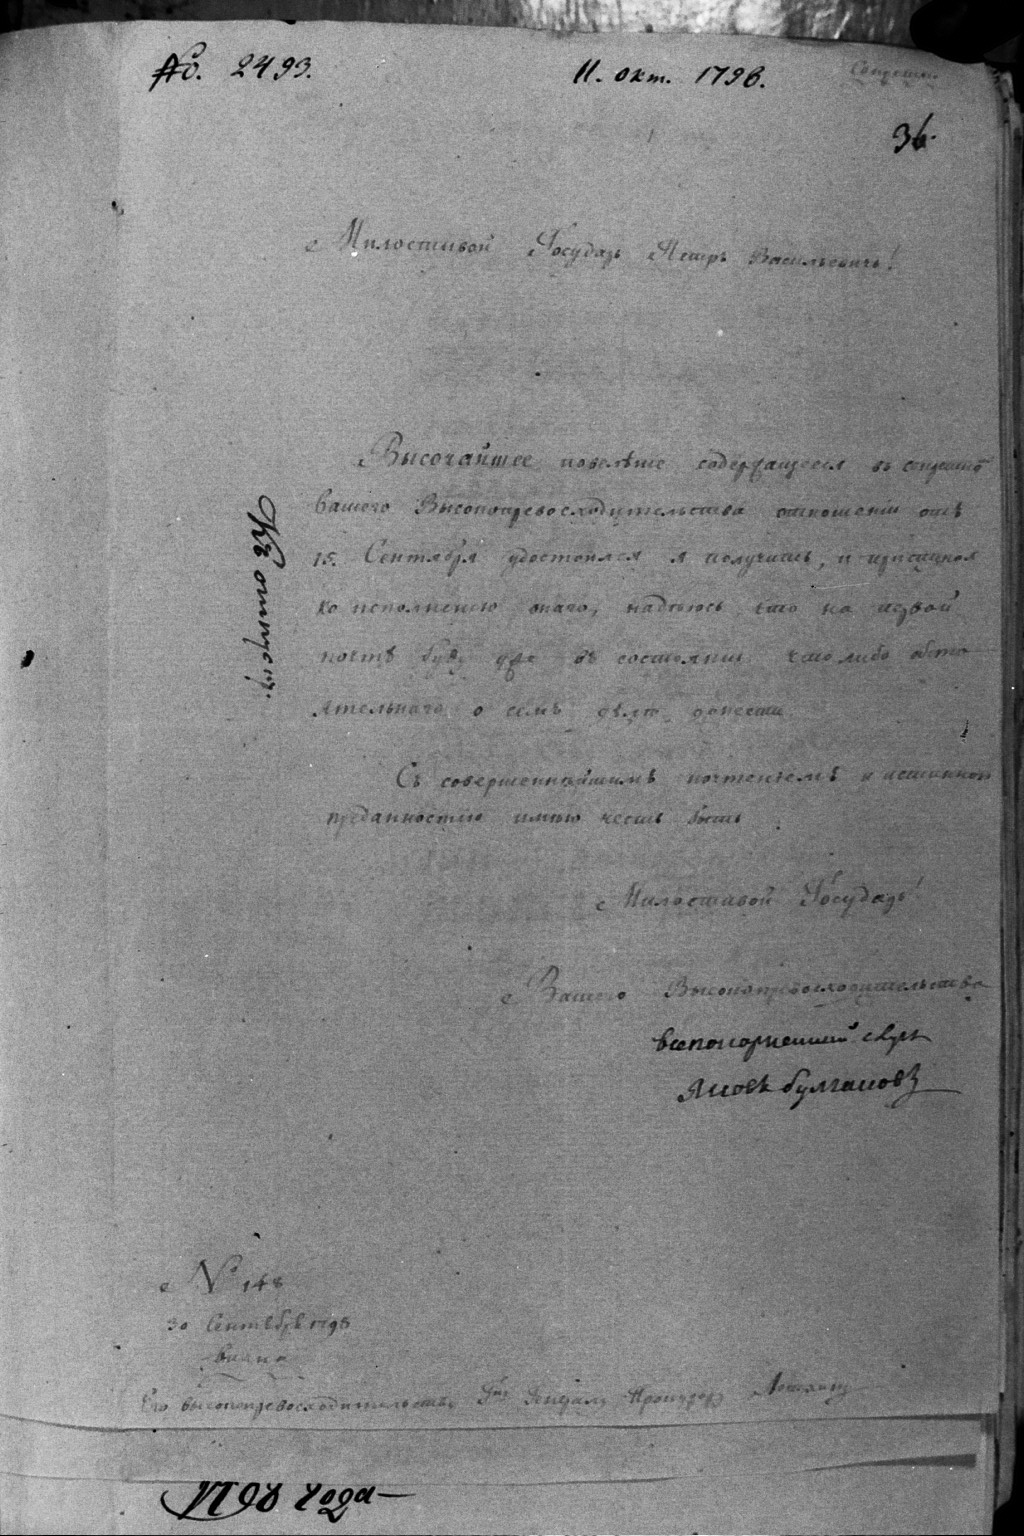 №. 2493.
11. окт. 1798.
36.
Милостивой Государь Петръ Васильевичь!
Высочайшее повелѣніе содержащееся въ секретно
Вашего Высокопревосходительства отношеніи отъ
15. Сентября удостоился я получить, и приступая
ко исполненію онаго, надѣюсь что на первой
почтѣ буду уже въ состояніи что либо обсто
ятельнаго о семъ дѣлѣ донести
Съ совершеннѣйшимъ почтеніемъ и истинною
преданностію имѣю честь быть
Милостивой Государь!
Вашего Высокопревосходительства
всепокорнейший слуга
Яковъ Булгаковъ
Къ отпуску.
№ 148
30 Сентября 1798
Вилна
Его высокопревосходительству Гну Генералу Прокурору Лопухину
1798 года